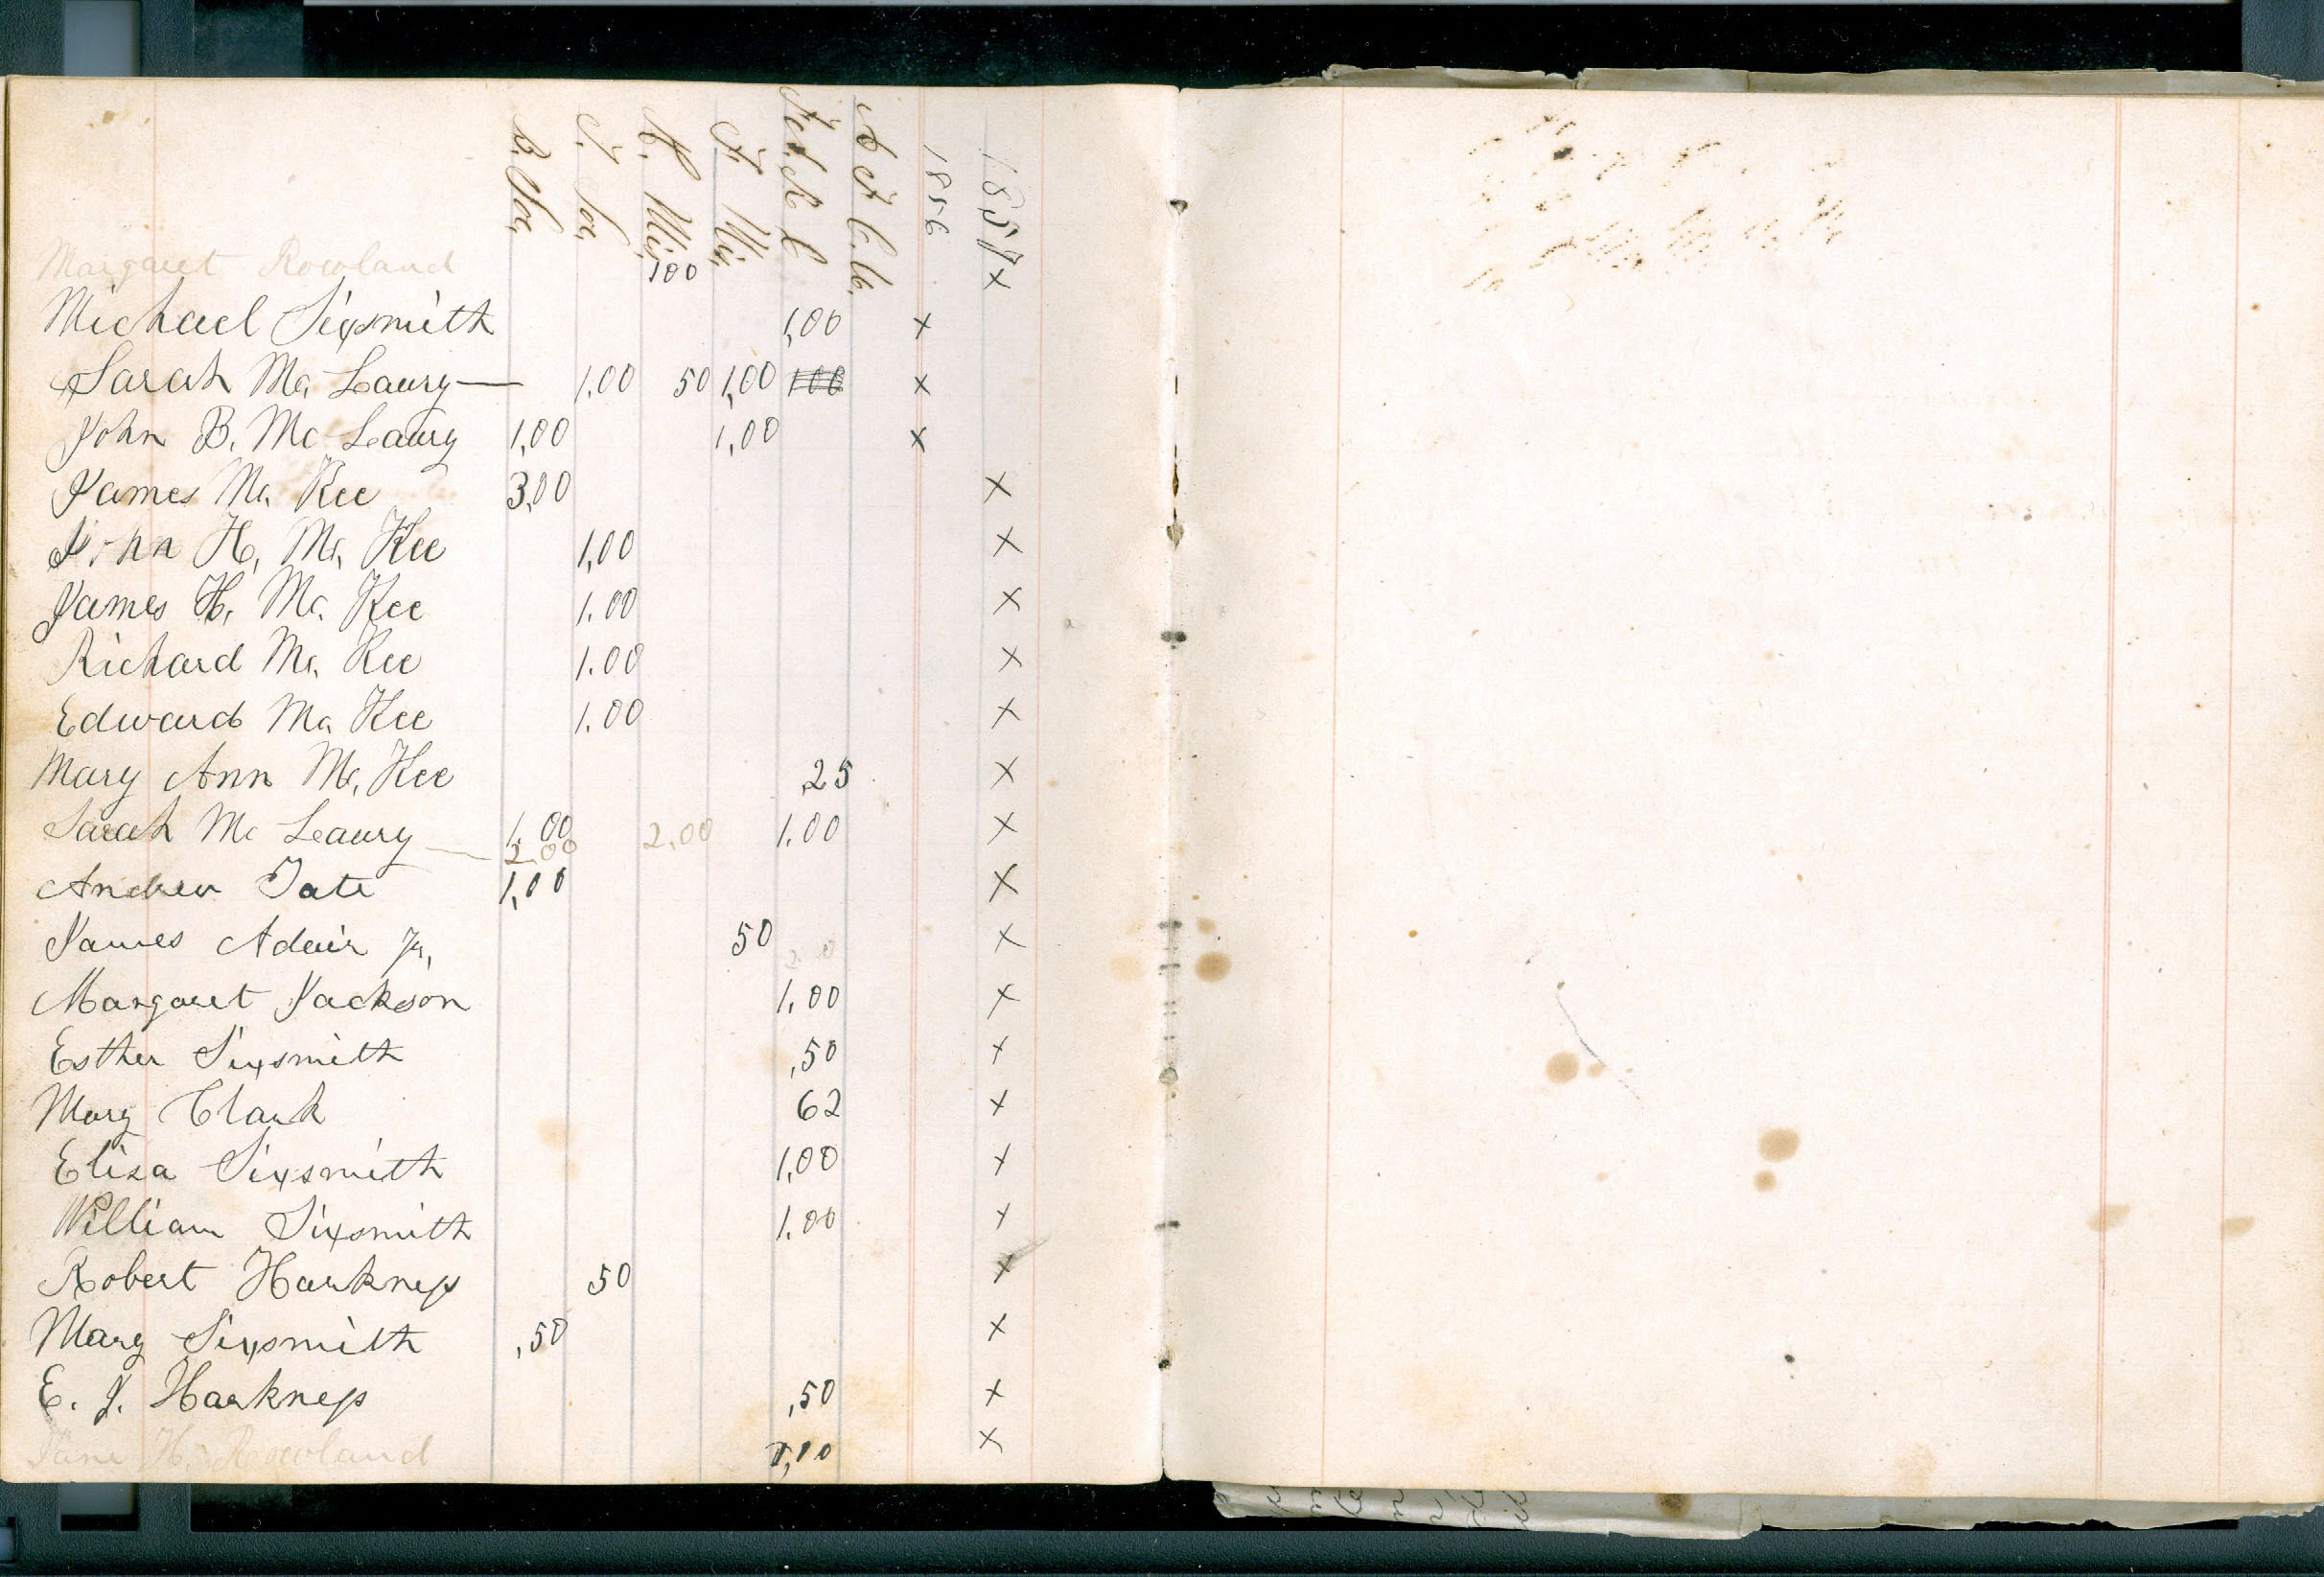 B. Soc. T. Soc. H. Mis. F. Mis. 1856 1857
Margaret Rowland 100 x
Michael Sixsmith 1,00 x
Sarah Mc Leaury — 1,00 50 1,00 100 x
John B. Mc Leaury 1,00 1,00 x
James Mc Kee 3,00 x
John H. Mc Kee 1,00 x
James H. Mc. Kee 1.00 x
Richard Mc Kee 1.00 x
Edward Mc Kee 1.00 x
Mary Ann Mc Kee 25 x
Sarah Mc Leaury — 1.00 2.00 1.00 x
2.00
Andrew Tate 1,00 x
James Adair Jr, 50 x
Margaret Jackson 1.00 x
Esther Sixsmith ,50 x
Mary Clark 62 x
Eliza Sixsmith 1,00 x
William Sixsmith 1.00 x
Robert Harkness 50 x
Mary Sixsmith ,50 x
E. J. Harkness ,50 x
Jane H. Rowland x